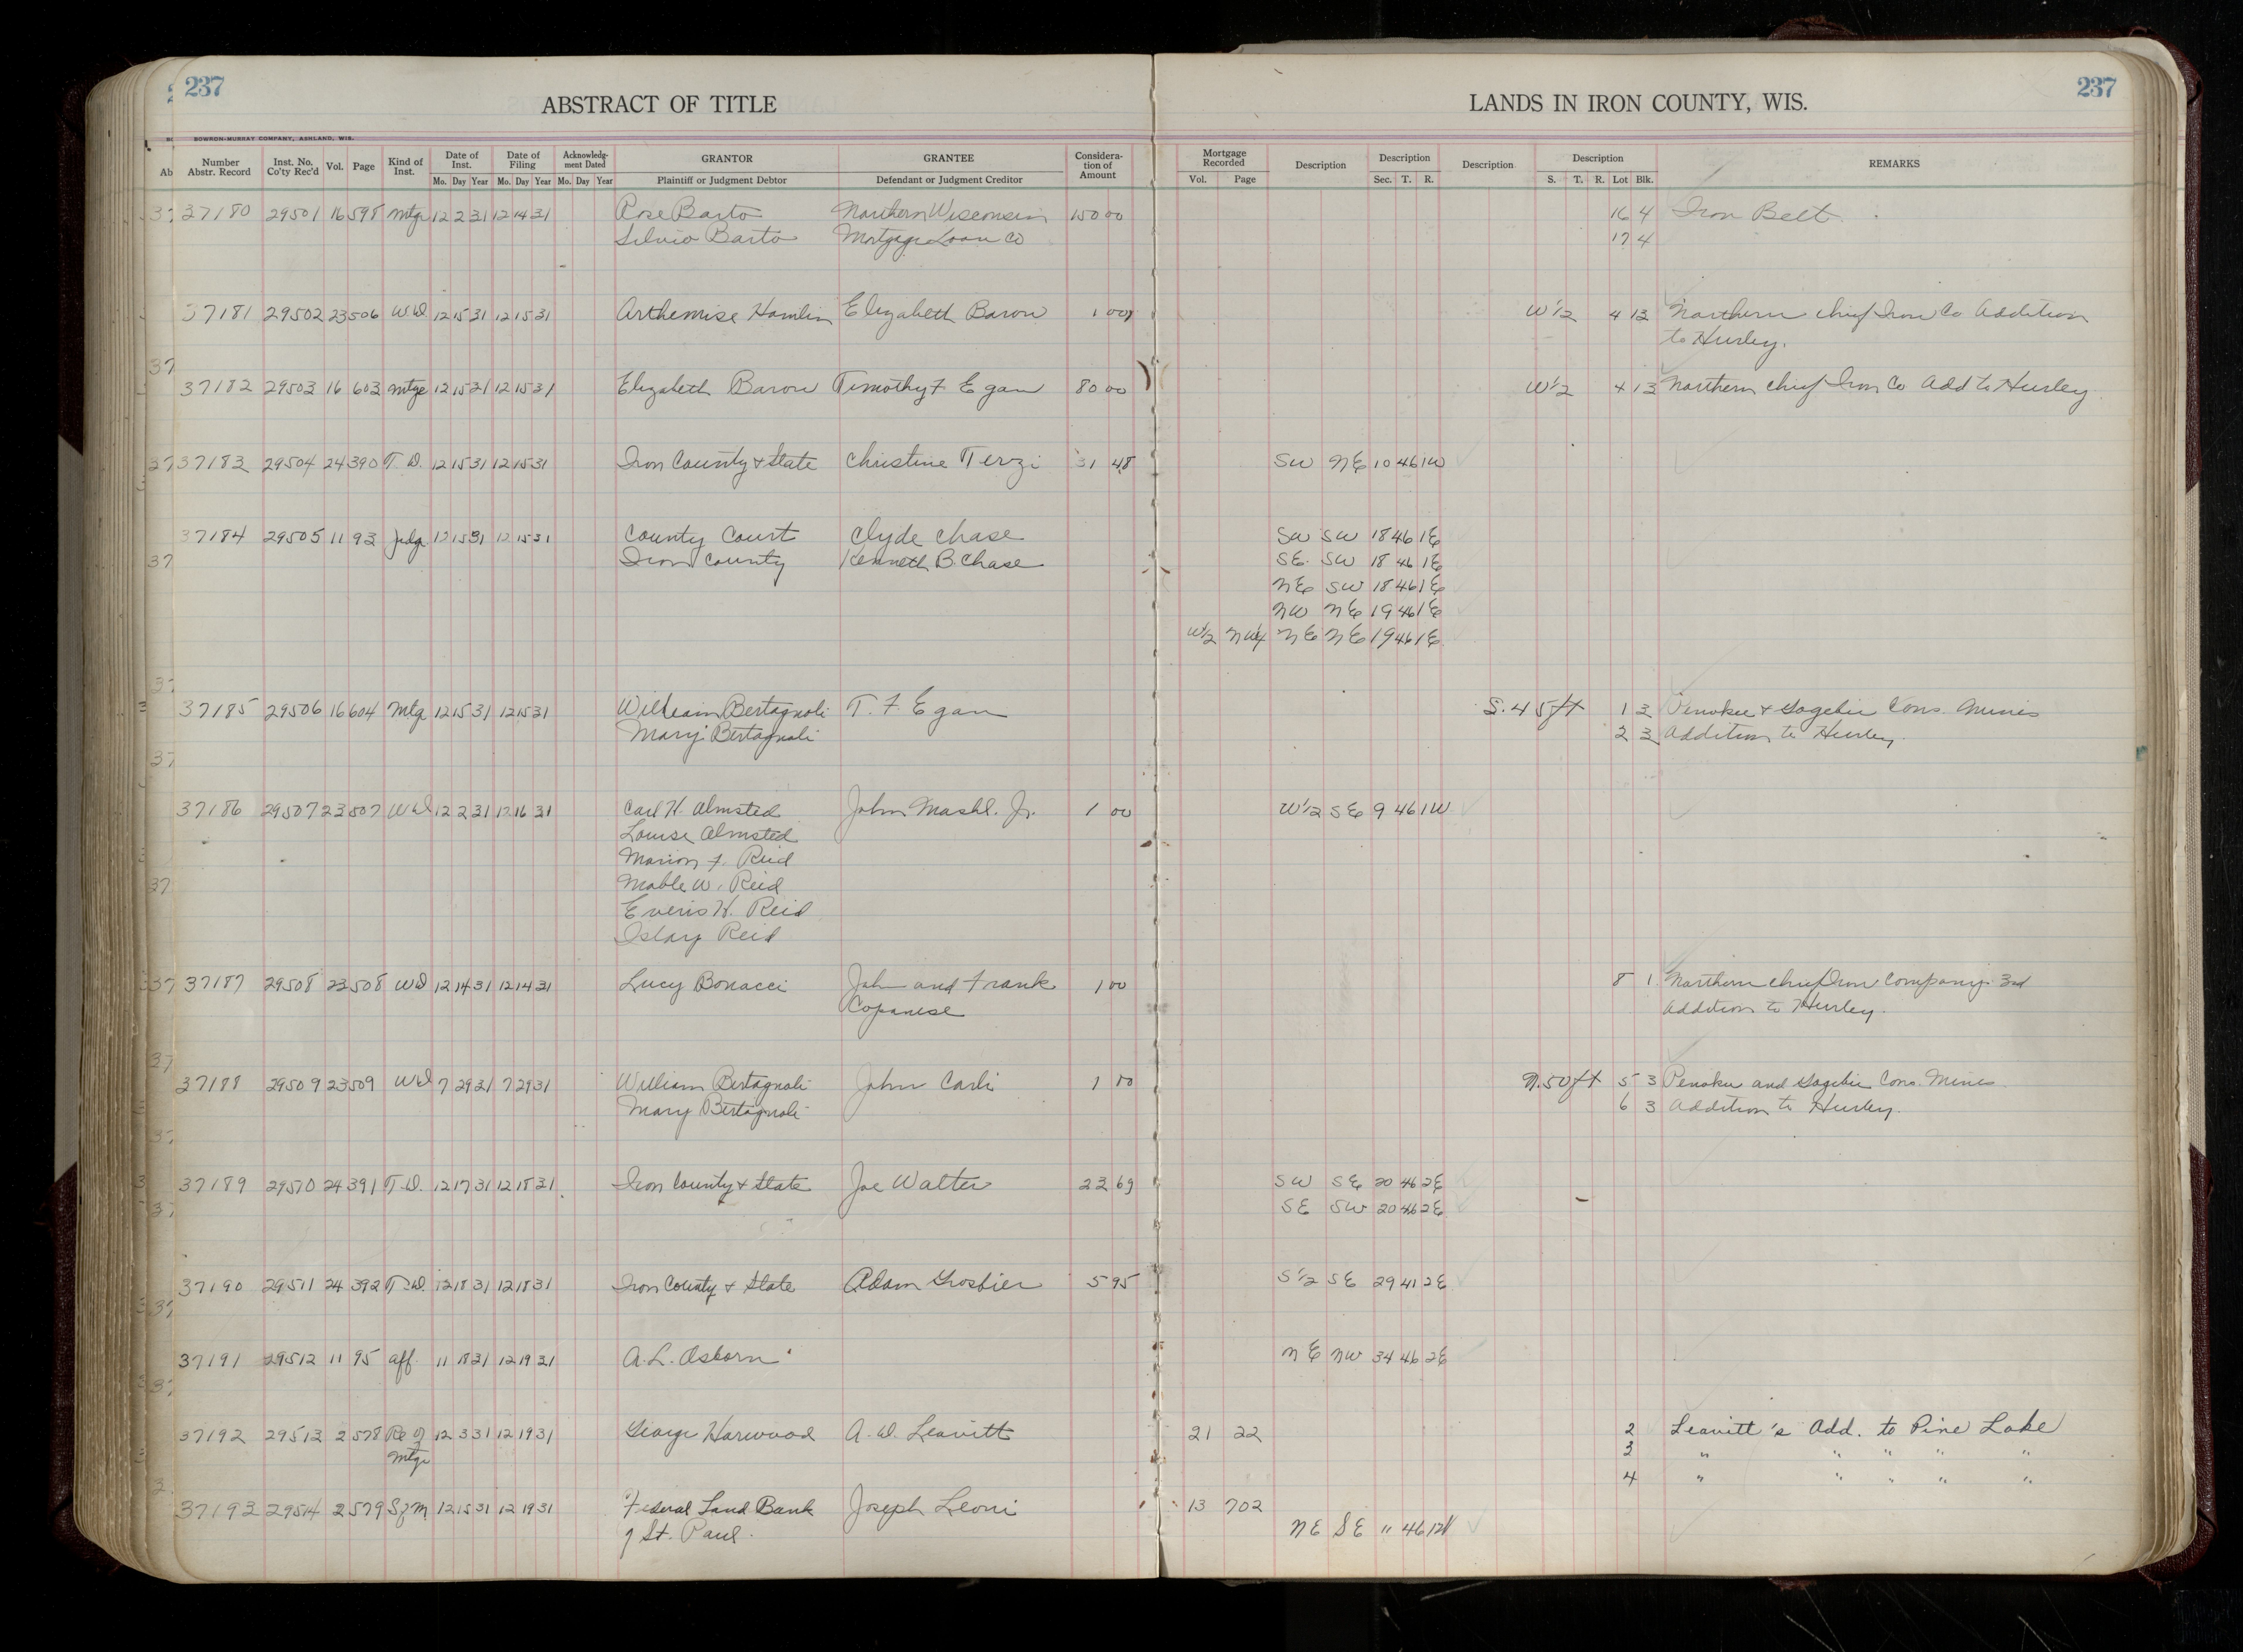 237
237
ABSTRACT OF TITLE
LANDS IN IRON COUNTY, WIS.
BOWRON-MURRAY COMPANY, ASHLAND, WIS.
Number Abstr. Record Inst. No. Co'ty Rec'd Vol. Page Kind of Inst. Date of Inst. Mo. Day Year Date of Filing Mo. Day Year Acknowledg-ment Dated Mo. Day Year GRANTOR Plaintiff or Judgment Debtor GRANTEE Defendant or Judgment Creditor Considera-tion of Amount Mortgage Recorded Vol. Page Description Description Sec. T. R. Description Description S. T. R. Lot Blk. REMARKS
37180 29501 16 598 Mtg 12 2 31 12 14 31 Rose Barto Northern Wisconsin 150 00 16 4 Iron Belt
Silvio Barto Mortgage Loan Co 17 4
37181 29502 23 506 W.D. 12 15 31 12 15 31 Arthemise Hamlin Elizabeth Baron 1 00 W 1/2 4 13 Northern Chief Iron Co Addition
to Hurley.
37182 29503 16 603 Mtge 12 15 31 12 15 31 Elizabeth Baron Timothy F Egan 80 00 W 1/2 4 13 Northern Chief Iron Co Add to Hurley
37183 29504 24 390 T.D. 12 15 31 12 15 31 Iron County & State Christine Terzi 31 48 SW NE 10 46 1W
37184 29505 11 93 Judg 12 15 31 12 15 31 County Court Clyde Chase SW SW 18 46 1E
Iron County Kenneth B. Chase SE SW 18 46 1E
NE SW 18 46 1E
NW NE 19 46 1E
W 1/2 NW 1/4 NE NE 19 46 1E
37185 29506 16 604 Mtg 12 15 31 12 15 31 William Bertagnoli T. F. Egan S. 45 ft 1 3 Penokee & Gogebic Cons. Mines
Mary Bertagnoli 2 3 Addition to Hurley
37186 29507 23 507 WD 12 2 31 12 16 31 Carl H. Almsted John Mashl. Jr. 1 00 W 1/2 SE 9 46 1W
Louise Almsted
Marion F. Reid
Mable W. Reid
Everis H. Reid
Reid
37187 29508 23 508 WD 12 14 31 12 14 31 Lucy Bonacci John and Frank 1 00 8 1 Northern Chief Iron Company 3rd
Copanese Addition to Hurley.
37188 29509 23 509 WD 7 29 31 7 29 31 William Bertagnoli John Carli 1 00 N. 50 ft 5 3 Penokee and Gogebic Cons. Mines
Mary Bertagnoli 6 3 Addition to Hurley.
37189 29510 24 391 T.D. 12 17 31 12 18 31 Iron County & State Joe Walter 23 69 SW SE 20 46 2E
SE SW 20 46 2E
37190 29511 24 392 T.D. 12 18 31 12 18 31 Iron County & State Adam Grosbier 5 95 S 1/2 SE 29 41 2E
37191 29512 11 95 aff. 11 18 31 12 19 31 A. L. Osborn NE NW 34 46 2E
37192 29513 2 578 Re of 12 3 31 12 19 31 George Harwood A. W. Leavitt 21 22 2 Leavitt's Add. to Pine Lake
Mtge 3 " " " " "
4 " " " " "
37193 29514 2 579 S of M 12 15 31 12 19 31 Federal Land Bank Joseph Leoni 13 702
of St. Paul. NE SE 11 46 1W